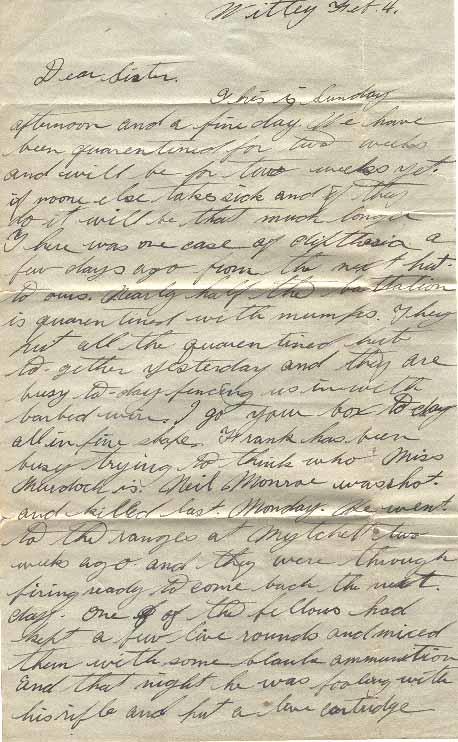 Witley Feb. 4.
Dear Sister.
This is Sunday
afternoon and a fine day. We have
been quarentined for two weeks
and will be for two weeks yet.
if noone else takes sick and if they
do it will be that much longer
There was one case of diptheria a
few days ago from the next hut
to ours. Nearly half the battalion
is quarentined with mumps. They
put all the quarentined hut
to-gether yesterday and they are
busy to-day fencing us in with
barbed wire. I got your box to day
all in fine shape. Frank has been
busy trying to think who Miss
Murdoch is. Neil Monroe was shot
and killed last Monday. He went
to the ranges at Mytchett two
weeks ago and they were through
firing ready to come back the next
day. One of the fellows had
kept a few live rounds and miced
them with some blank ammunition
and that night he was fooling with
his rifle and put a live cartridge